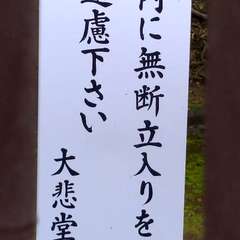 に無断立入りを
慮下さい
大悲堂